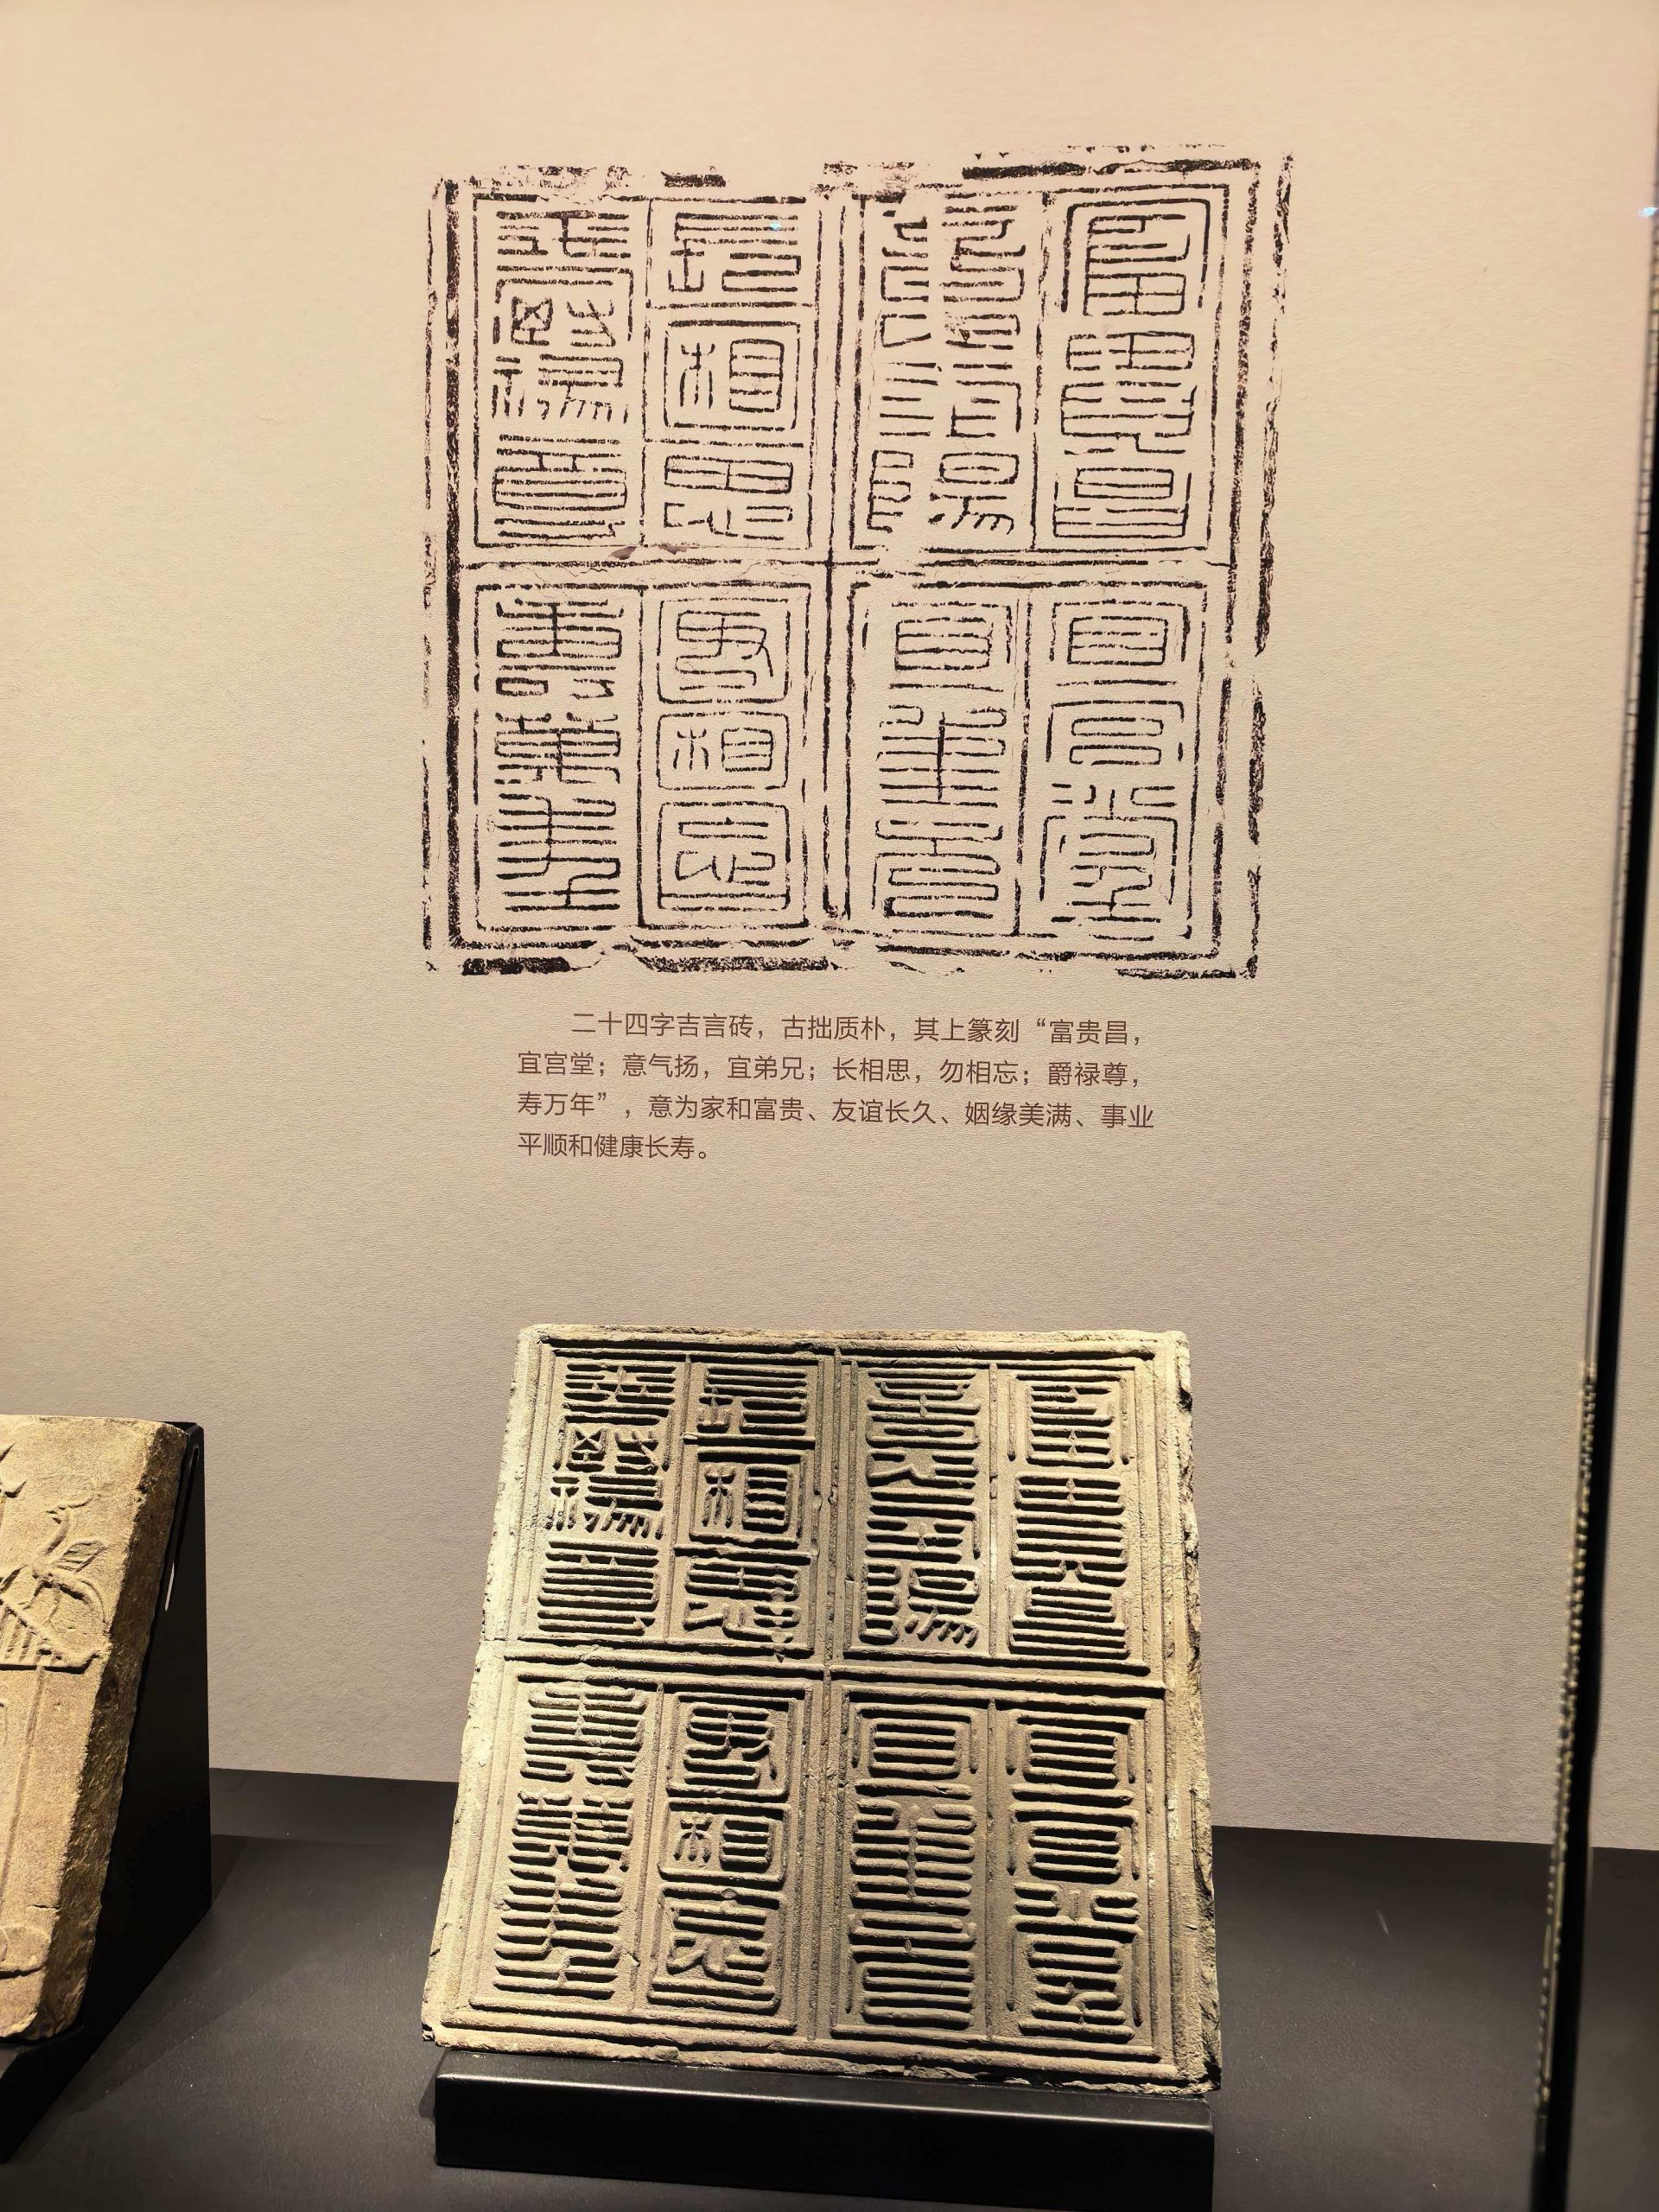 富貴昌
宜宫堂
意氣陽
宜弟兄
長相思
毋相忘
爵禄尊
壽萬年
二十四字吉言砖，古拙质朴，其上篆刻“富贵昌，
宜宫堂；意气扬，宜弟兄；长相思，勿相忘；爵禄尊，
寿万年”，意为家和富贵、友谊长久、姻缘美满、事业
平顺和健康长寿。
富貴昌
宜宫堂
意氣陽
宜弟兄
長相思
毋相忘
爵禄尊
壽萬年